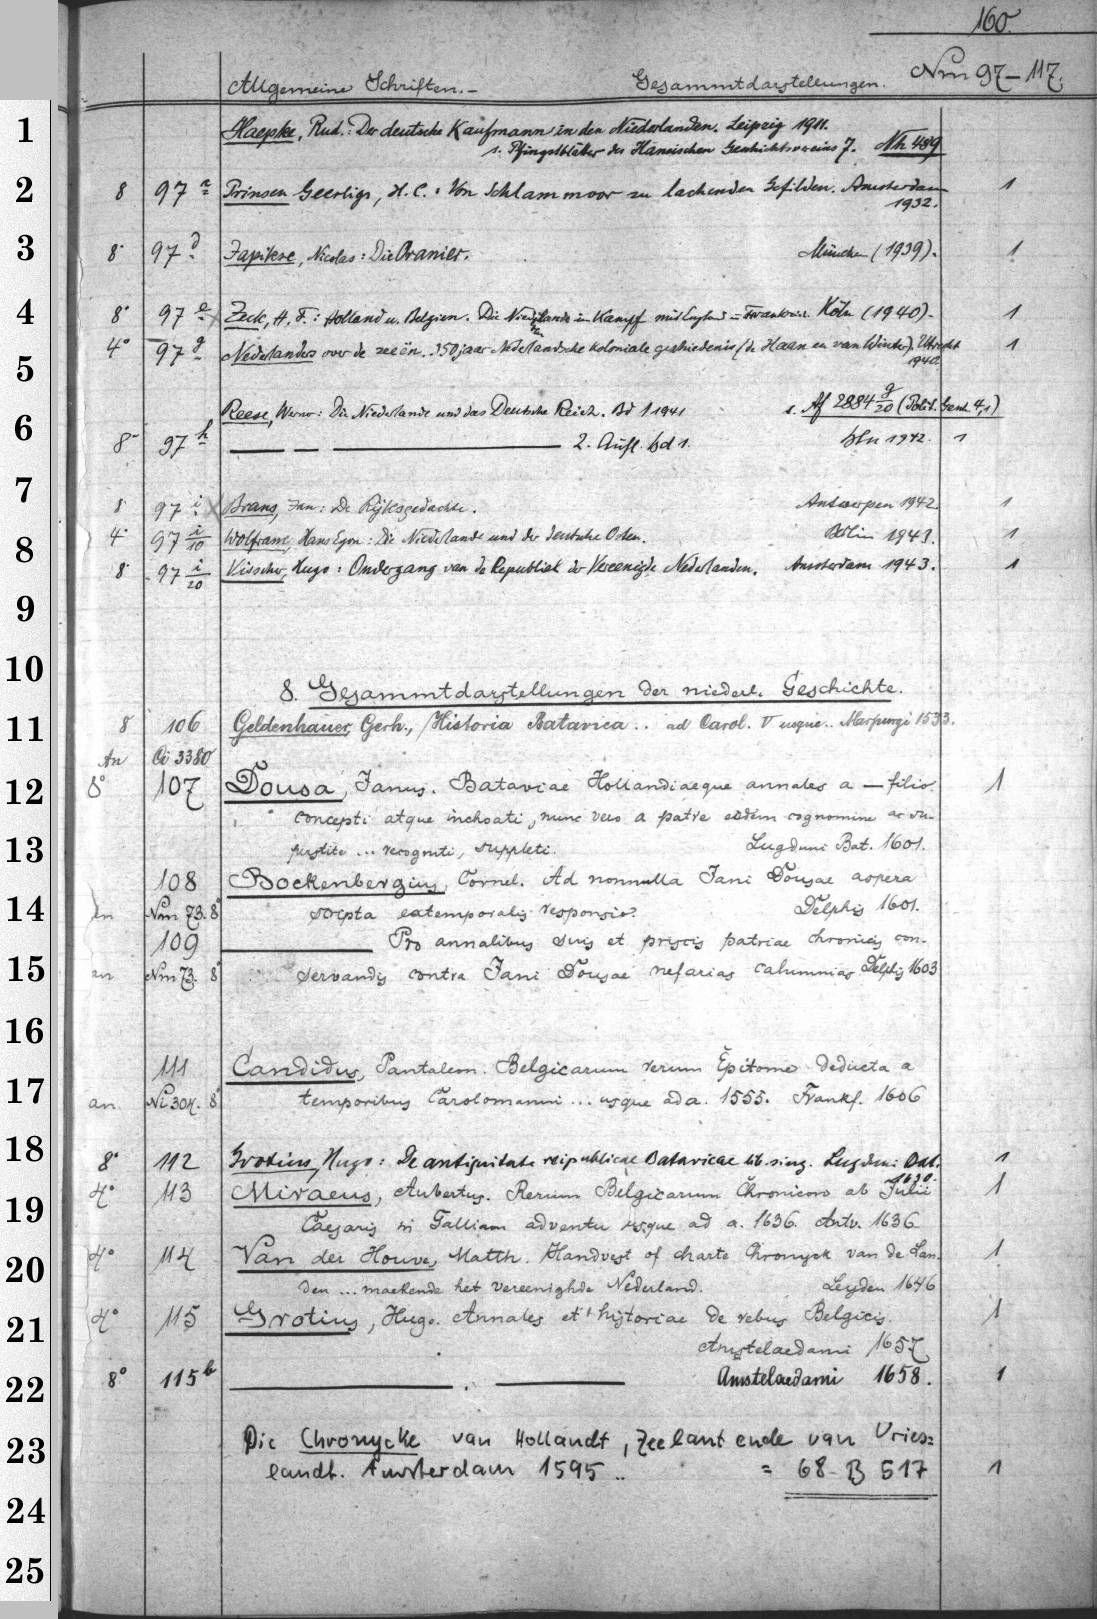 160.
Allgemeine Schriften.- Gesammtdarstellungen. Nm 97-117.
1 Haepke, Rud.: Der deutsche Kaufmann in den Niederlanden. Leipzig 1911.
s. Pfingstblätter des Hansischen Geschichtsvereins 7. Nh 489
2 8 97 a Prinsen Geerligs, H. C.: Von Schlammoor zu lachenden Gefilden. Amsterdam 1
1932.
3 8° 97 d Japikse, Nicolas: Die Oranier. München (1939). 1
4 8° 97 e Zeck, H. F.: Holland u. Belgien. Die Niederlande im Kampf mit England = Frankreich. Köln (1940). 1
4° 97 g Nederlanders over de zeeën. 350 jaar Nederlandsche koloniale geschiedenis (de Haan en van Winter). Utrecht 1
5 1940.
Reese, Werner: Die Niederlande und das Deutsche Reich. Bd 1 1941 s. Af 2884 g/20 (Polit. Gesch 4,1)
6 8° 97 h — — — 2. Aufl. bd 1. bln 1942. 1
7
8 97 i Brans, Jan: De Rijksgedachte. Antwerpen 1942. 1
8 4° 97 i/10 Wolfram, Hans Egon: Die Niederlande und der deutsche Osten. Berlin 1943. 1
8 97 i/20 Visscher, Hugo: Ondergang van de Republiek der Vereenigde Nederlanden. Amsterdam 1943. 1
9
10
8. Gesammtdarstellungen der niederl. Geschichte.
11 8 106 Geldenhauer, Gerh., Historia Batavica .. ad Carol. V usque.. Marpurgi 1533.
An Oi 3380
12 8° 107 Dousa, Janus. Bataviae Hollandiaeque annales a — filio 1
concepti atque inchoati, nunc vero a patre eidem cognomine ac su-
13 perstite ... recogniti, suppleti. Lugduni Bat. 1601.
108 Bockenbergius, Cornel. Ad nonnulla Jani Dousae aspera
14 an Nm 73. 8° scripta extemporalis responsio. Delphis 1601.
109 — Pro annalibus suis et priscis patriae chronicis con-
15 an Nm 73. 8° servandis contra Jani Dousae nefarias calumnias Delphis 1603
16
111 Candidus, Pantaleon. Belgicarum rerum Epitome deducta a
17 an Ni 304. 8° temporibus Carolomanni ... usque ad a. 1555. Frankf. 1606
18 8° 112 Grotius, Hugo: De antiquitate reipublicae Batavicae lib. sing. Lugduni Bat. 1
1630.
19 4° 113 Miraeus, Aubertus. Rerum Belgicarum Chronicon ab Julii 1
Caesaris in Galliam adventu usque ad a. 1636. Antv. 1636
20 4° 114 Van der Houve, Matth. Handvest of charte Chronyck van de Lan- 1
den ... maekende het vereenighde Nederland. Leyden 1646
21 4° 115 Grotius, Hugo. Annales et historiae de rebus Belgicis. 1
Amstelaedami 1657
22 8° 115 b — . — Amstelaedami 1658. 1
23 Die Chronycke van Hollandt, Zeelant ende van Vries=
landt. Amsterdam 1595 .. = 68 - B 517 1
24
25